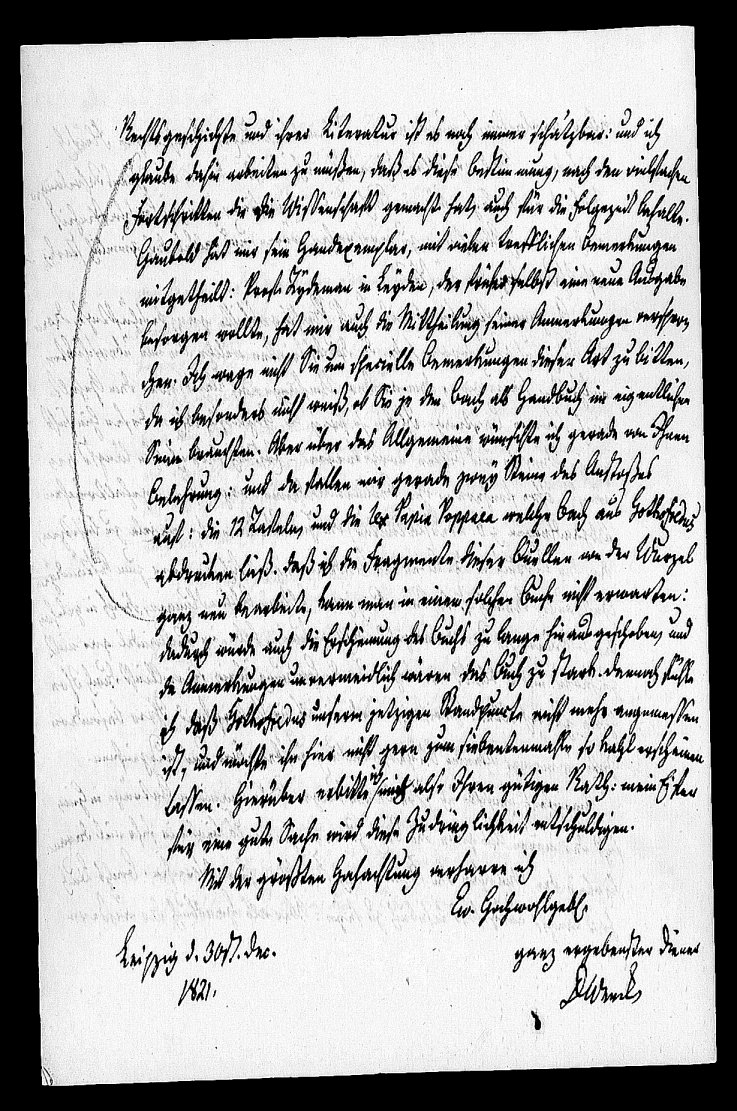 Rechtsgeschichte und ihrer Literatur ist es noch immer schätzbar: und ich
glaube dahin arbeiten zu müßen, daß es diese Bestimmung, nach den vielfachen
Fortschritten die die Wissenschaft gemacht hat, auch für die Folgezeit behalte.
Haubold hat mir sein Handexemplar, mit vielen trefflichen Bemerkungen
mitgetheilt: Prof. Tydeman in Leyden, der früher selbst eine neue Ausgabe
besorgen wollte, hat mir auch die Mittheilung seiner Anmerkungen verspro-
chen. Ich wage nicht Sie um specielle Bemerkungen dieser Art zu bitten,
da ich besonders nicht weiß, ob Sie je den Bach als Handbuch im eigentlichen
Sinne brauchten. Aber über das Allgemeine wünschte ich gerade von Ihnen
Belehrung: und da fallen mir gerade zwey Steine des Anstoßes
auf: die 12 Tafeln, und die lex Papia Poppaea welche Bach aus Gothofredus
abdrucken ließ. Daß ich die Fragmente dieser Quellen von der Wurzel
ganz neu bearbeite, kann man in einem solchen Buche nicht erwarten:
dadurch würde auch die Erscheinung des Buchs zu lange hinausgeschoben, und
die Anmerkungen unvermeidlich wären das Buch zu stark. Dennoch fühle
ich daß Gothofredus unserm jetzigen Standpuncte nicht mehr angemessen
ist, und möchte ihn hier nicht gern zum siebentenmahle so kahl erscheinen
lassen. Hierüber erbitte ich mir also Ihren gütigen Rath: mein Eifer
für eine gute Sache wird diese Zudringlichkeit entschuldigen.
Mit der größten Hochachtung verharre ich
Ew. Hochwohlgeb.
Leipzig d. 30st. Dec.
ganz ergebenster Diener
1821.
D Wenck